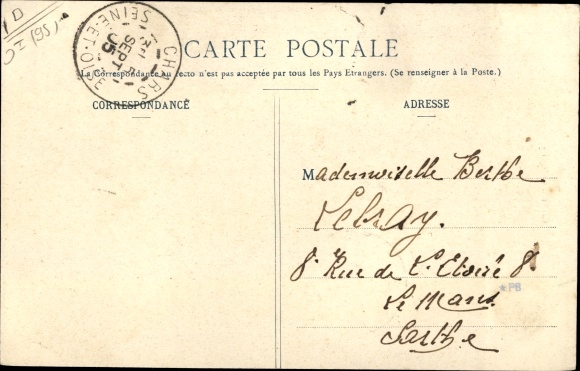 D
CHARS
SEPT
05
SEINE-ET-OISE
CARTE POSTALE
La Correspondance au recto n'est pas acceptée par tous les Pays Etrangers. (Se renseigner à la Poste.)
CORRESPONDANCE
ADRESSE
Mademoiselle Berthe
Lebray.
8 Rue de l'Etoile 8
Le Mans
*PB
Sarthe